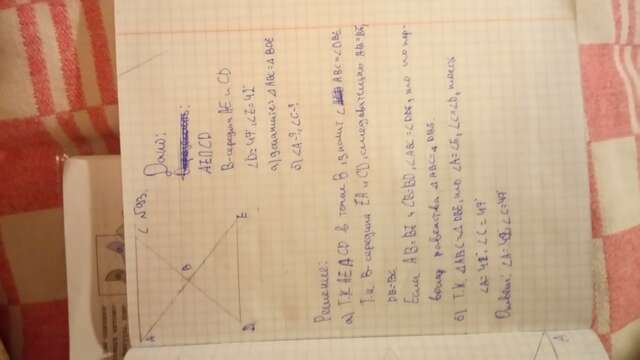 C №93.
A
B
E
D
Дано:
AE∩CD
B-середина AE и CD
∠D=47°, ∠E=42°
а) Докажите: △ABC=△DBE
б) ∠A-?, ∠C-?
Решение:
а) Т.к AE∩CD в точке B, значит ∠ABC=∠DBE
Т.к B-середина EA и CD, следовательно AB=BE,
DB=BC
Если AB=BE и CB=BD, ∠ABC=∠DBE, то по пер-
вому равенства △ABC=△DBE.
б) Т.к △ABC=△DBE, то ∠A=∠E, ∠C=∠D, то есть
∠A=42°, ∠C=47°
Ответ: ∠A=42, ∠C=47°
A